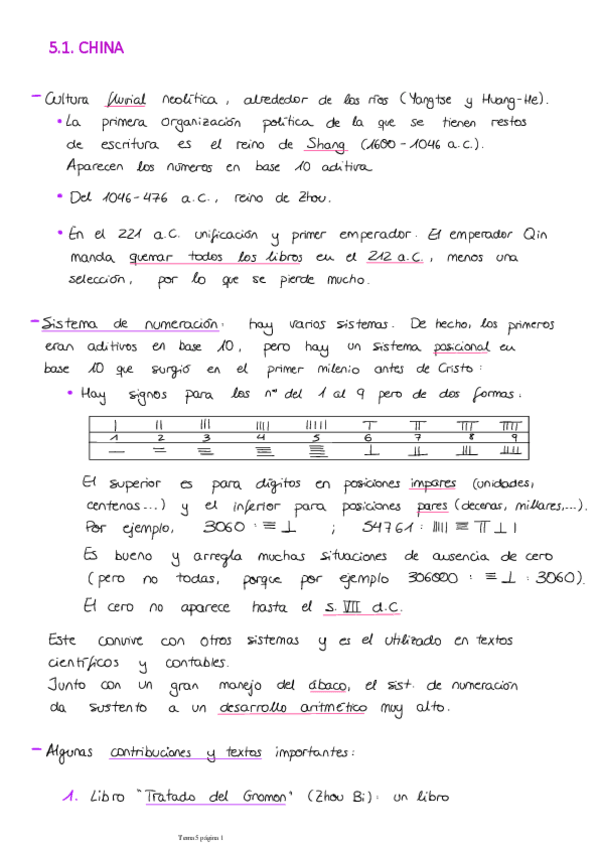 5.1. CHINA
- Cultura fluvial neolítica, alrededor de los ríos (Yangtse y Huang-He).
• La primera organización política de la que se tienen restos
de escritura es el reino de Shang (1600-1046 a.C.).
Aparecen los números en base 10 aditiva
• Del 1046-476 a.C., reino de Zhou.
• En el 221 a.C. unificación y primer emperador. El emperador Qin
manda quemar todos los libros en el 212 a.C., menos una
selección, por lo que se pierde mucho.
- Sistema de numeración: hay varios sistemas. De hecho, los primeros
eran aditivos en base 10, pero hay un sistema posicional en
base 10 que surgió en el primer milenio antes de Cristo:
• Hay signos para los nos del 1 al 9 pero de dos formas:
| || ||| |||| ||||| 𝍮 𝍯 𝍰 𝍱
1 2 3 4 5 6 7 8 9
— = ≡ 𝍬 𝍭 ⊥ 𝍦 𝍧 𝍨
El superior es para dígitos en posiciones impares (unidades,
centenas...) y el inferior para posiciones pares (decenas, millares,...).
Por ejemplo, 3060 : ≡ ⊥ ; 54761 : ||||| 𝍬 𝍯 ⊥ |
Es bueno y arregla muchas situaciones de ausencia de cero
(pero no todas, porque por ejemplo 306000 : ≡ ⊥ : 3060).
El cero no aparece hasta el s. VII d.C.
Este convive con otros sistemas y es el utilizado en textos
científicos y contables.
Junto con un gran manejo del ábaco, el sist. de numeración
da sustento a un desarrollo aritmético muy alto.
- Algunas contribuciones y textos importantes:
1. Libro "Tratado del Gnomon" (Zhou Bi): un libro
Tema 5 página 1